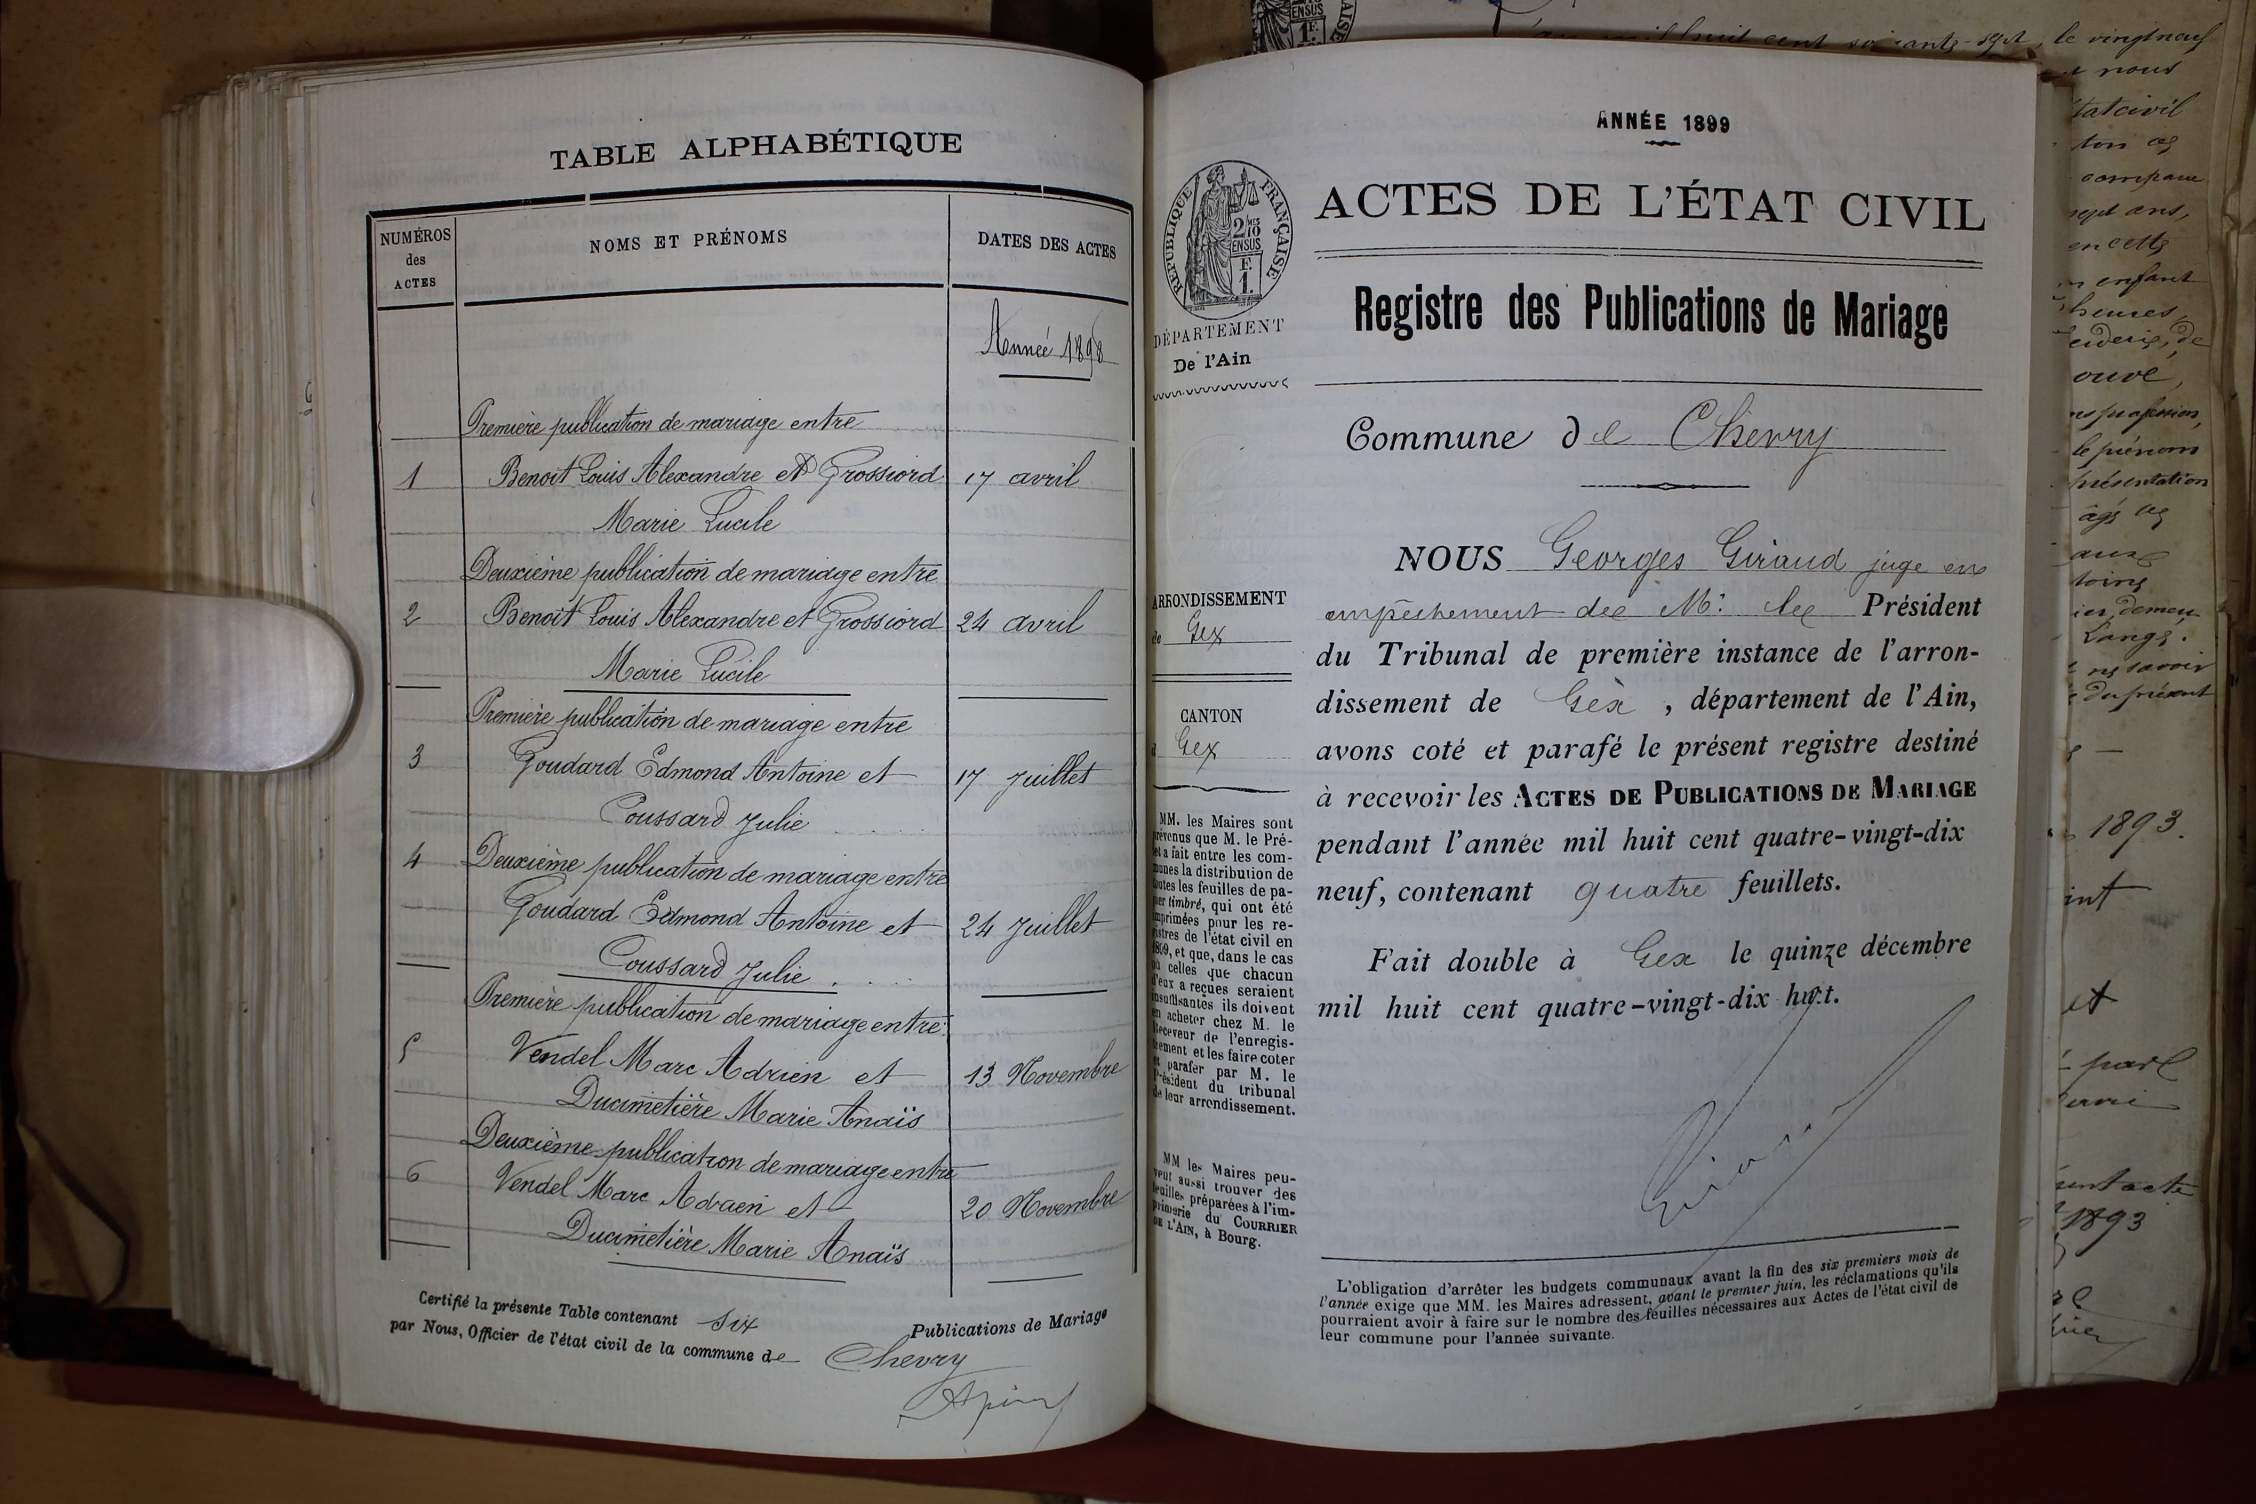 TABLE ALPHABÉTIQUE
NUMÉROS
des
ACTES
NOMS ET PRÉNOMS
DATES DES ACTES
Année 1898
Première publication de mariage entre
1 Benoit Louis Alexandre et Grossiord 17 avril
Marie Lucile
Deuxième publication de mariage entre
2 Benoit Louis Alexandre et Grossiord 24 avril
Marie Lucile
Première publication de mariage entre
3 Goudard Edmond Antoine et 17 Juillet
Coussard Julie
4 Deuxième publication de mariage entre
Goudard Edmond Antoine et 24 Juillet
Coussard Julie
Première publication de mariage entre
5 Vendel Marc Adrien et 13 Novembre
Ducimetière Marie Anaïs
Deuxième publication de mariage entre
6 Vendel Marc Adrien et 20 Novembre
Ducimetière Marie Anaïs
Certifié la présente Table contenant six Publications de Mariage
par Nous, Officier de l'état civil de la commune de Chevry
ANNÉE 1899
RÉPUBLIQUE FRANÇAISE
2/10 EN SUS
F.
1.
ACTES DE L'ÉTAT CIVIL
Registre des Publications de Mariage
DÉPARTEMENT
De l'Ain
Commune de Chevry
ARRONDISSEMENT
de Gex
CANTON
d Gex
MM. les Maires sont
prévenus que M. le Pré-
et a fait entre les com-
munes la distribution de
toutes les feuilles de pa-
pier timbré, qui ont été
imprimées pour les re-
gistres de l'état civil en
1899, et que, dans le cas
où celles que chacun
d'eux a reçues seraient
insuffisantes ils doivent
en acheter chez M. le
Receveur de l'enregis-
trement et les faire coter
et parafer par M. le
Président du tribunal
de leur arrondissement.
MM les Maires peu-
vent aussi trouver des
feuilles préparées à l'im-
primerie du COURRIER
DE L'AIN, à Bourg.
NOUS Georges Giraud juge en
empêchement de Mr. le Président
du Tribunal de première instance de l'arron-
dissement de Gex, département de l'Ain,
avons coté et parafé le présent registre destiné
à recevoir les ACTES DE PUBLICATIONS DE MARIAGE
pendant l'année mil huit cent quatre-vingt-dix
neuf, contenant quatre feuillets.
Fait double à Gex le quinze décembre
mil huit cent quatre-vingt-dix huit.
L'obligation d'arrêter les budgets communaux avant la fin des six premiers mois de
l'année exige que MM. les Maires adressent, avant le premier juin, les réclamations qu'ils
pourraient avoir à faire sur le nombre des feuilles nécessaires aux Actes de l'état civil de
leur commune pour l'année suivante.
le vingt neuf
nous
compare
sept ans,
en cette
enfant
heures,
le prénom
présentation
1893.
1893